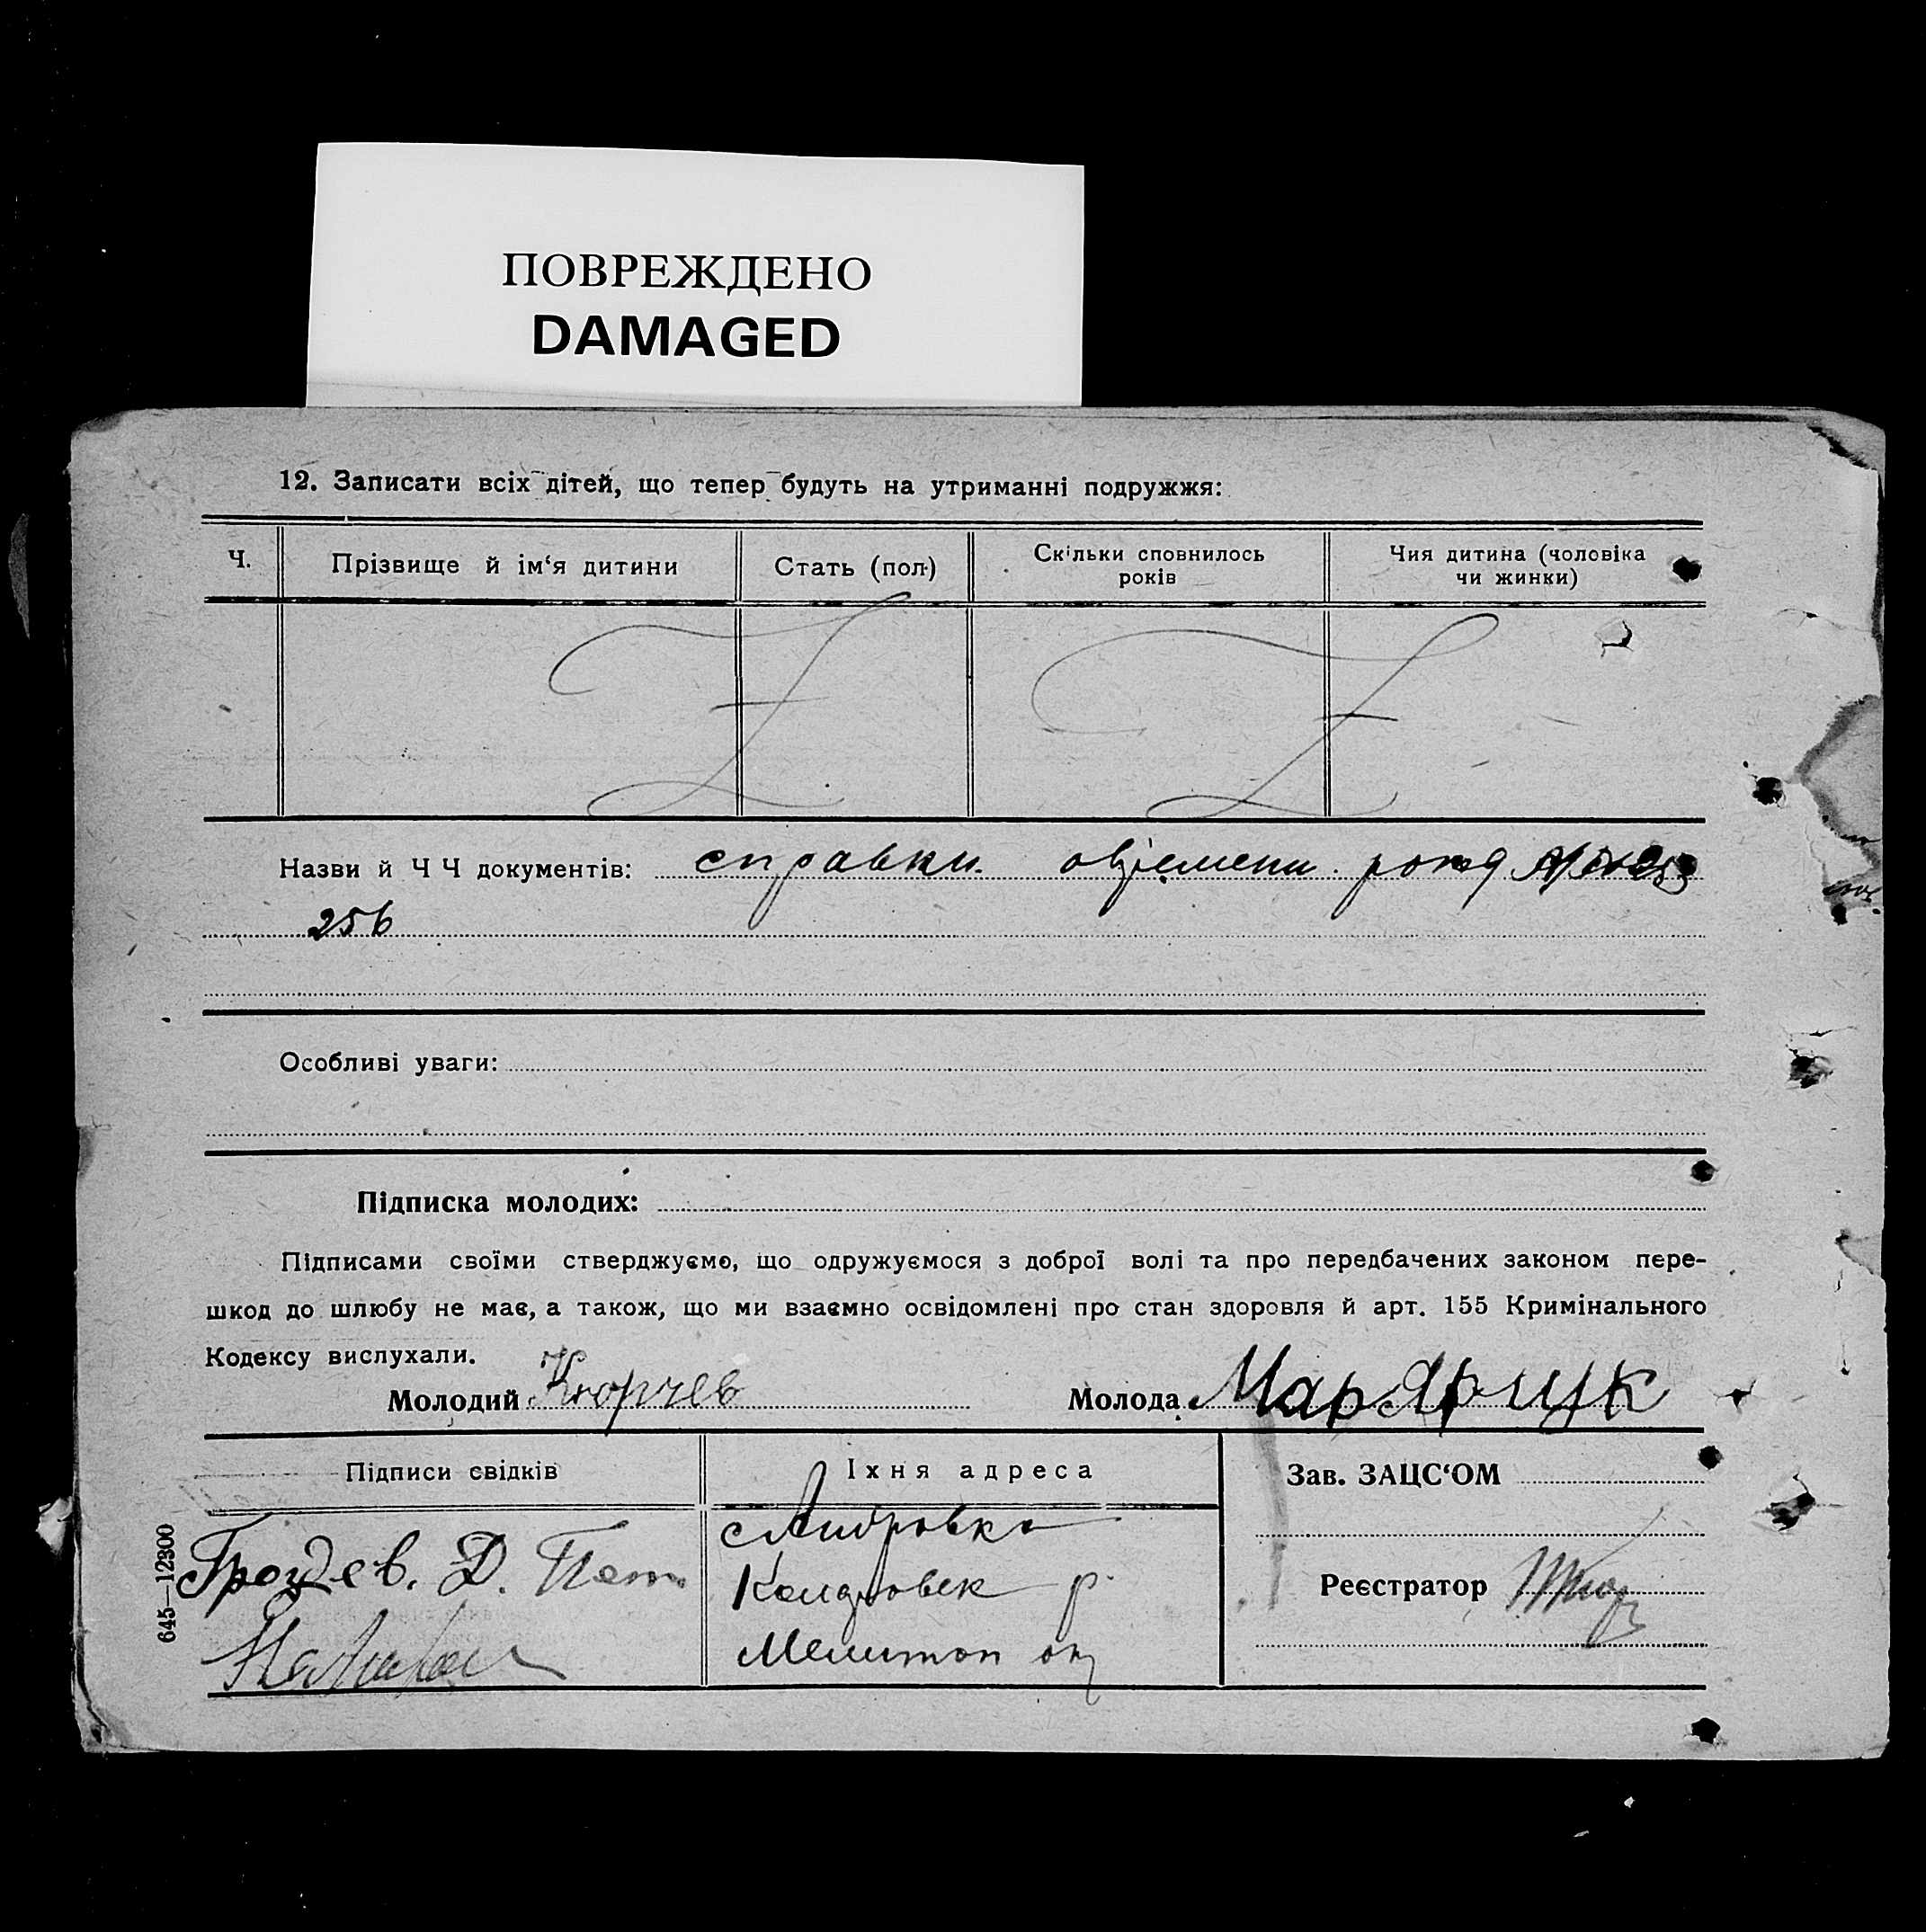 ПОВРЕЖДЕНО
DAMAGED
12. Записати всіх дітей, що тепер будуть на утриманні подружжя:
Ч.
Прізвище й ім‘я дитини
Стать (пол)
Скільки сповнилось років
Чия дитина (чоловіка чи жинки)
Назви й Ч Ч документів: справки
256
Особливі уваги:
Підписка молодих:
Підписами своїми стверджуємо, що одружуємося з доброї волі та про передбачених законом пере-
шкод до шлюбу не має, а також, що ми взаємно освідомлені про стан здоровля й арт. 155 Кримінального
Кодексу вислухали.
Молодий Кюрчев Молода
Підписи свідків
Їхня адреса
Зав. ЗАЦС‘ОМ
Д.
р.
Реєстратор
Мелитоп
645—12300